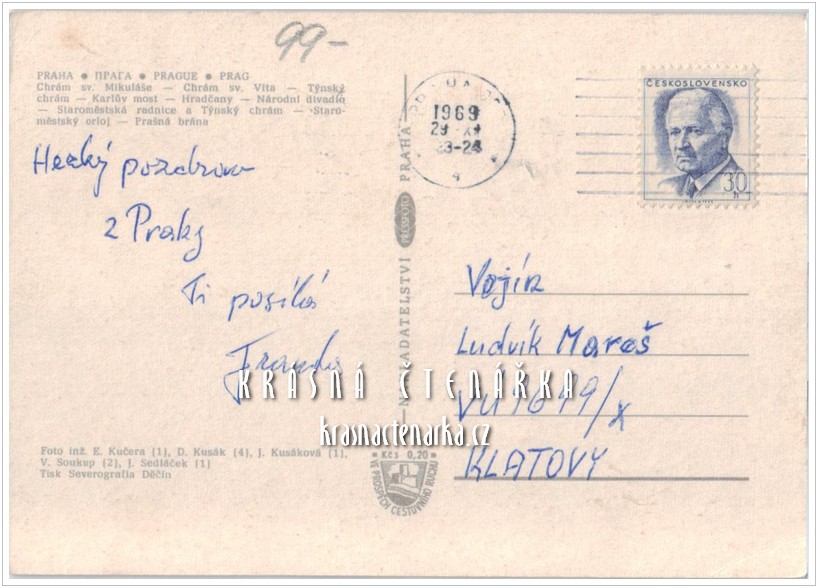 99-
PRAHA ● ПРАГА ● PRAGUE ● PRAG
Chrám sv. Mikuláše — Chrám sv. Víta — Týnský
chrám — Karlův most — Hradčany — Národní divadlo
— Staroměstská radnice a Týnský chrám — Staro-
městský orloj — Prašná brána
Hezký pozdrav
z Prahy
Ti posílá
Franda
Foto inž. E. Kučera (1), D. Kusák (4), J. Kusáková (1),
V. Soukup (2), J. Sedláček (1)
Tisk Severografia Děčín
NAKLADATELSTVÍ PRESSFOTO PRAHA
Kčs 0,20
VE PROSPĚCH CESTOVNÍHO RUCHU
1969
ČESKOSLOVENSKO
30
h
Vojín
Ludvík Maroš
VÚ 1649/X
KLATOVY
KRASNÁ ČTENÁŘKA
krasnactenarka.cz